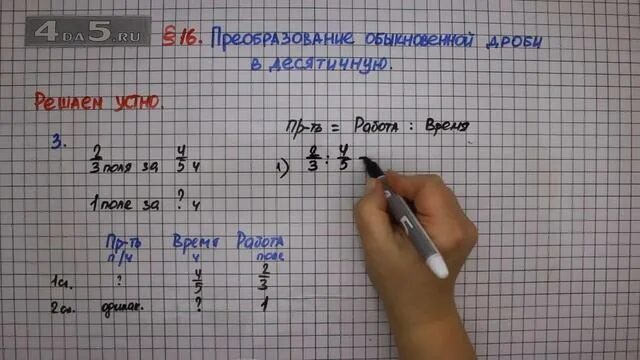 4DA5.RU
§16. Преобразование обыкновенной дроби
в десятичную.
Решаем устно.
3.
2/3 поля за 4/5 ч
1 поле за ? ч
Пр-ть Время Работа
п/ч ч поле
1сл. ? 4/5 2/3
2сл. одинак. ? 1
Пр-ть = Работа : Время
1) 2/3 : 4/5 =